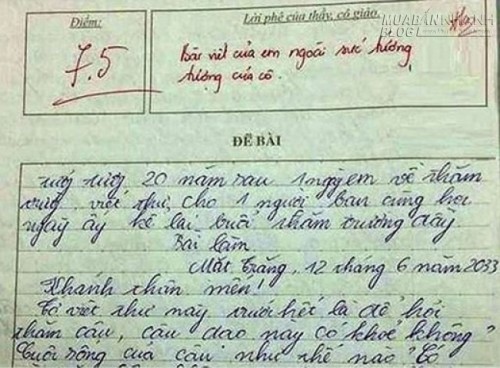 Điểm:
Lời phê của thầy, cô giáo.
MUABANNHANH
BLOG
7.5
Bài viết của em ngoài sức tưởng
tượng của cô.
ĐỀ BÀI
20 năm sau 1 ngày em về thăm
viết thư cho 1 người bạn cùng học
ngày ấy kể lại buổi thăm trường đầy
Bài làm
Mặt Trăng, 12 tháng 6 năm 2033
Khanh thân mến!
Tớ viết thư này trước hết là để hỏi
thăm cậu, cậu dạo này có khoẻ không?
Cuộc sống của cậu như thế nào? Tớ